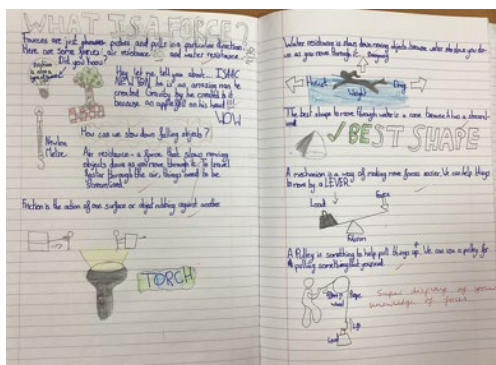 WHAT IS A FORCE?
Forces are just pushes and pulls in a particular direction.
Here are some forces: air resistance and water resistance.
Did you know?
Hey let me tell you about... ISAAC
NEWTON! he is an amazing man he
created Gravity by he created it
because an apple fell on his head!!!
WOW
Newton
Metre
How can we slow down falling objects?
Air resistance - a force that slows moving
objects down as you move through it. To travel
faster through the air, things need to be
streamlined.
Friction is the action of one surface or object rubbing against another
TORCH
Water resistance is slows down moving objects because water
us as you move through it.
Thrust
Drag
Weight
The best shape to move through water is a cone because it has a
BEST SHAPE
A mechanism is a way of making move forces easier. We can help things
to move by a LEVER.
Load
Force
A Pulley is something to help pull things up. We can use a pulley for
pulling something
wheel
Rope
Lift
Load
Super display of your
knowledge of forces.